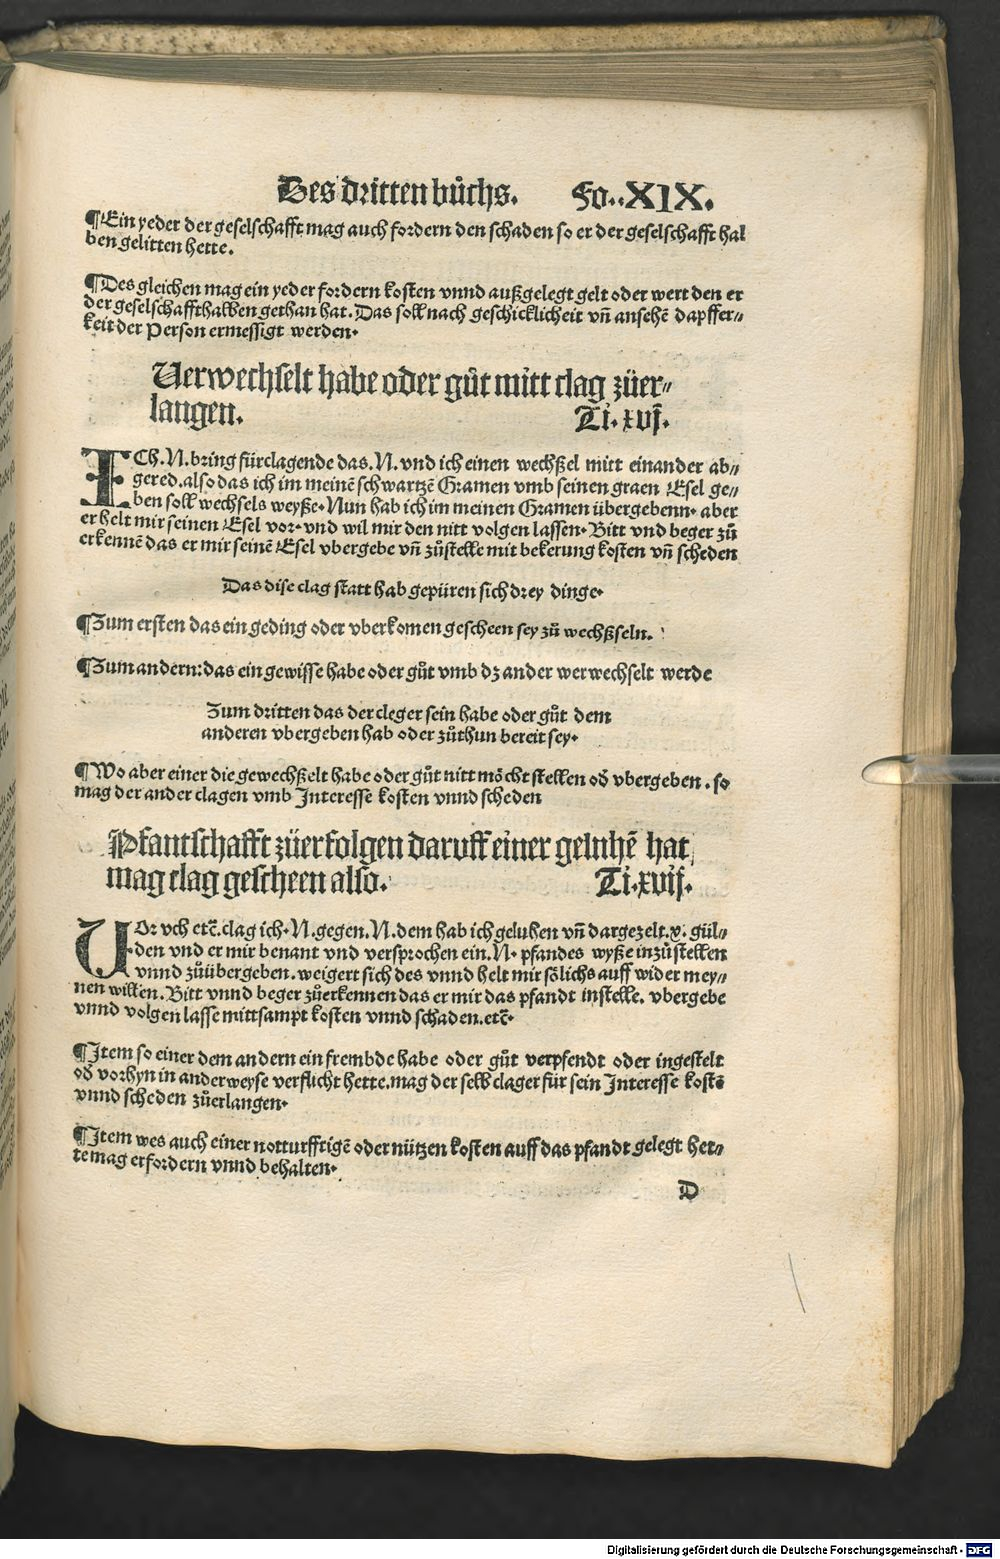 Des dritten bůchs. Fo..XIX.
¶Ein yeder der geselschafft mag auch fordern den schaden so er der geselschafft hal
ben gelitten hette.
¶Des gleichen mag ein yeder fordern kosten vnnd außgelegt gelt oder wert den er
der geselschaffthalben gethan hat. Das soll nach geschicklicheit vñ ansehẽ dapffer⸗
keit der Person ermessigt werden.
Verwechselt habe oder gůt mitt clag zůer⸗
langen. Ti. xvj.
ICh. N. bring fürclagende das. N. vnd ich einen wechßel mitt einander ab⸗
gered. also das ich im meinẽ schwartzẽ Gramen vmb seinen graen Esel ge⸗
ben soll wechsels weyße. Nun hab ich im meinen Gramen übergebenn. aber
er helt mir seinen Esel vor. vnd wil mir den nitt volgen lassen. Bitt vnd beger zů
erkennẽ das er mir seinẽ Esel vbergebe vñ zůstelle mit bekerung kosten vñ scheden
Das dise clag statt hab gepüren sich drey dinge.
¶Zum ersten das ein geding oder vberkomen gescheen sey zů wechßseln.
¶Zum andern: das ein gewisse habe oder gůt vmb dz ander werwechselt werde
Zum dritten das der cleger sein habe oder gůt dem
anderen vbergeben hab oder zůthun bereit sey.
¶Wo aber einer die gewechßelt habe oder gůt nitt möcht stellen od̃ vbergeben. so
mag der ander clagen vmb Interesse kosten vnnd scheden
Pfantschafft zůerfolgen daruff einer geluhẽ hat
mag clag gescheen also. Ti. xvij.
VOr vch etc̃. clag ich. N. gegen. N. dem hab ich geluhen vñ dargezelt. x. gül⸗
den vnd er mir benant vnd versprochen ein. N. pfandes wyße inzůstellen
vnnd zůübergeben. weigert sich des vnnd helt mir sölichs auff wider mey⸗
nen willen. Bitt vnnd beger zůerkennen das er mir das pfandt instelle. vbergebe
vnnd volgen lasse mittsampt kosten vnnd schaden. etc̃.
¶Item so einer dem andern ein frembde habe oder gůt verpfendt oder ingestelt
od̃ vorhyn in ander weyse verflicht hette. mag der selb clager für sein Interesse kostẽ
vnnd scheden zůerlangen.
¶Item wes auch einer notturfftigẽ oder nützen kosten auff das pfandt gelegt het⸗
te mag erfordern vnnd behalten.
D
Digitalisierung gefördert durch die Deutsche Forschungsgemeinschaft - DFG